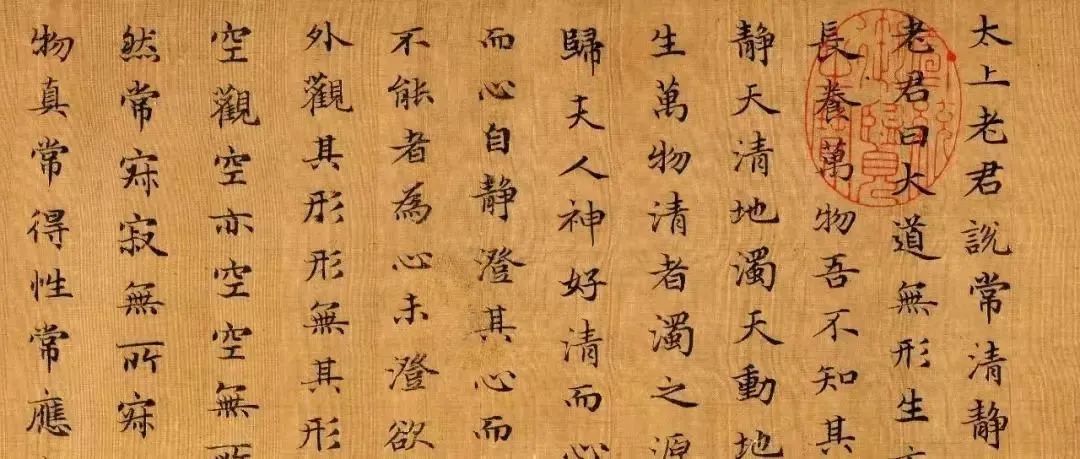 太上老君說常清靜
老君曰大道無形生
長養萬物吾不知其
靜天清地濁天動地
生萬物清者濁之源
歸夫人神好清而心
而心自靜澄其心而
不能者為心未澄欲
外觀其形形無其形
空觀空亦空空無所
然常寂寂無所寂
物真常得性常應